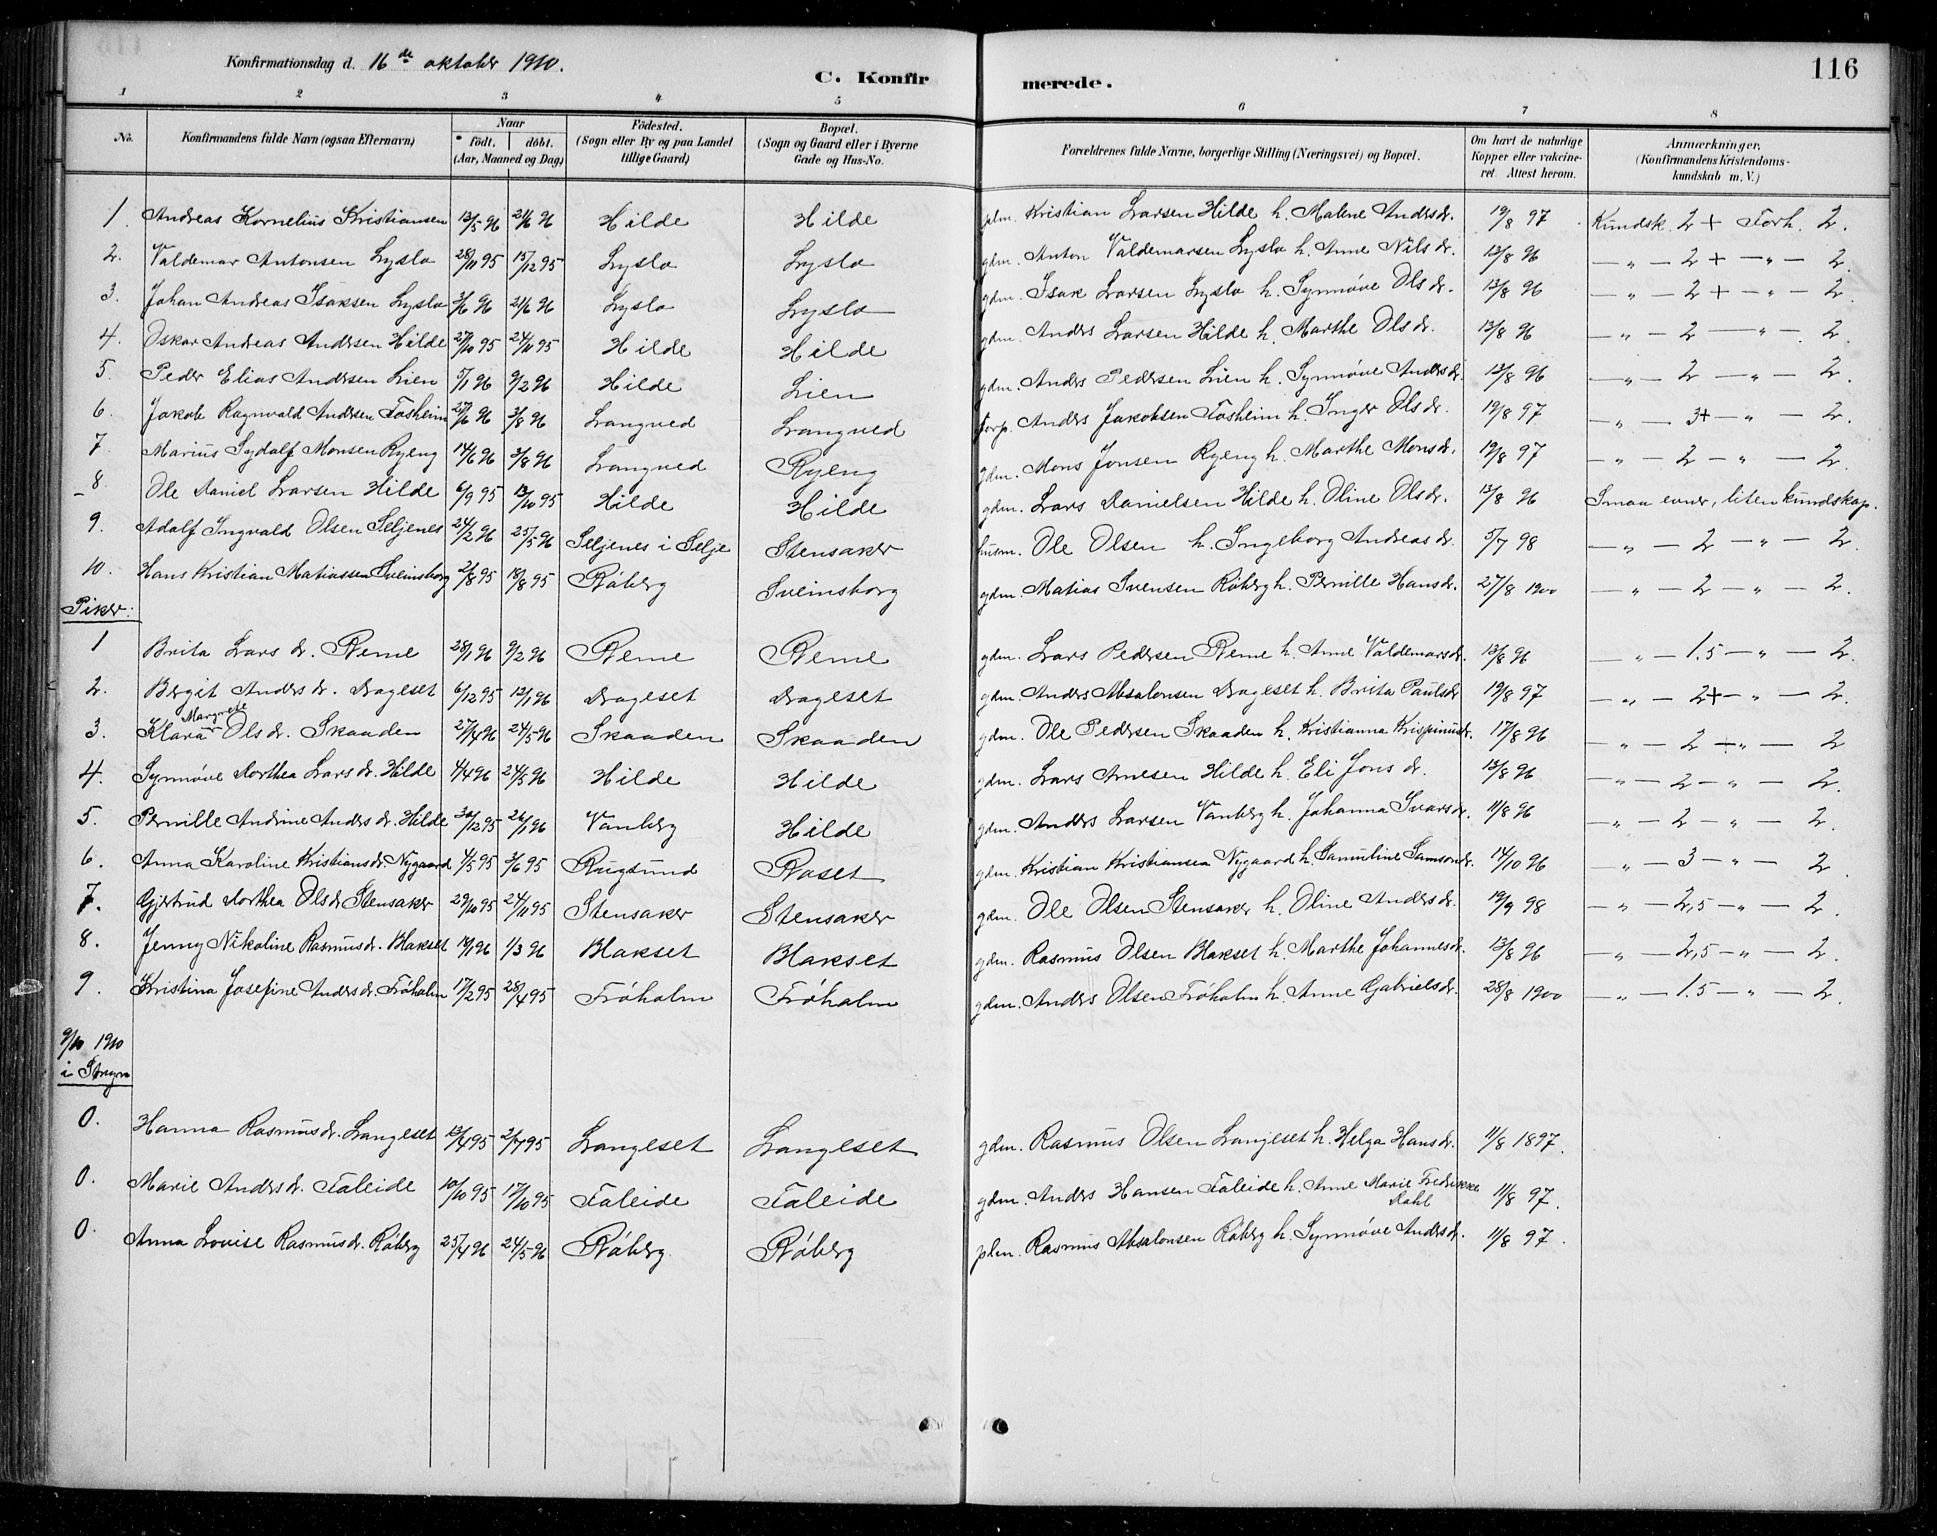 Konfirmationsdag d. 16de oktober 1910. C. Konfirmerede. 116
1 2 3 4 5 6 7 8
No. Konfirmandens fulde Navn (ogsaa Efternavn) Naar födt. döbt. (Aar, Maaned og Dag) Födested. (Sogn eller By og paa Landet tillige Gaard) Bopæl. (Sogn og Gaard eller i Byerne Gade og Hus-No. Forældrenes fulde Navne, borgerlige Stilling (Næringsvei) og Bopæl. Om havt de naturlige Kopper eller vakcineret. Attest herom. Anmærkninger. (Konfirmandens Kristendomskundskab m. V.)
1. Andreas Kornelius Kristiansen 13/5 96 21/6 96 Hilde Hilde plm. Kristian Larsen Hilde h. Malene Andersdr. 19/8 97 Kundsk. 2+ Forh. 2.
2. Valdemar Antonsen Lyslo 28/11 95 15/12 95 Lyslo Lyslo gdm. Anton Valdemarsen Lyslo h. Anne Nilsdr. 13/8 96 — „ — 2+ — „ — 2.
3. Johan Andreas Isaksen Lyslo 3/6 96 21/6 96 Lyslo Lyslo gdm. Isak Larsen Lyslo h. Synnøve Olsdr. 13/8 96 — „ — 2+ — „ — 2.
4. Oskar Andreas Andersen Hilde 27/10 95 24/11 95 Hilde Hilde gdm. Anders Larsen Hilde h. Marthe Olsdr. 13/8 96 — „ — 2 — „ — 2.
5. Peder Elias Andersen Lien 5/1 96 9/2 96 Hilde Lien gdm. Anders Pedersen Lien h. Synnøve Andersdr. 13/8 96 — „ — 2 — „ — 2.
6. Jakob Ragnvald Andersen Fosheim 27/6 96 3/8 96 Langved Langved forp. Anders Jakobsen Fosheim h. Inger Olsdr. 19/8 97 — „ — 3+ — „ — 2.
7. Marius Sydolf Monsen Ryeng 14/6 96 3/8 96 Langved Ryeng gdm. Mons Jonsen Ryeng h. Marthe Monsdr. 19/8 97 — „ — 2 — „ — 2.
8. Ole Daniel Larsen Hilde 6/9 95 13/10 95 Hilde Hilde gdm. Lars Danielsen Hilde h. Oline Olsdr. 13/8 96 Smaa evner, liten kundskap.
9. Adolf Ingvald Olsen Seljenes 24/2 96 25/5 96 Seljenes i Selje Stensaker husm. Ole Olsen h. Ingeborg Andreasdr. 5/7 98 — „ — 2 — „ — 2.
10. Hans Kristian Matiassen Sveinsborg 2/8 95 18/8 95 Røberg Sveinsborg gdm. Matias Svensen Røberg h. Pernille Hansdr. 27/8 1900 — „ — 2 — „ — 2.
Piker:
1 Brita Larsdr. Reme 28/1 96 9/2 96 Reme Reme gdm. Lars Pedersen Reme h. Anne Valdemarsdr. 13/8 96 — „ — 1.5 — „ — 2.
2. Bergit Andersdr. Drageset 6/12 95 12/1 96 Drageset Drageset gdm. Anders Absalonsen Drageset h. Brita Paulsdr 19/8 97 — „ — 2+ — „ — 2.
3. Klara Margrete Olsdr. Skaaden 27/4 96 24/5 96 Skaaden Skaaden gdm. Ole Pedersen Skaaden h. Kristianna Krispinusdr. 17/8 96 — „ — 2+ — „ — 2
4. Synnøve Dorthea Larsdr. Hilde 4/4 96 24/5 96 Hilde Hilde gdm. Lars Arnesen Hilde h. Eli Jonsdr. 13/8 96 — „ — 2 — „ — 2.
5. Pernille Andrine Andersdr. Hilde 30/12 95 26/1 96 Vanberg Hilde gdm. Anders Larsen Vanberg h. Johanna Ivarsdr. 11/8 96 — „ — 2 — „ — 2.
6. Anna Karoline Kristiansdr. Nygaard 4/5 95 3/6 95 Rugsund Roset gdm. Kristian Kristiansen Nygaard h. Samuline Samsondr. 14/10 96 „ — 3 — „ — 2.
7. Gjertrud Dorthea Olsdr Stensaker 29/10 95 24/11 95 Stensaker Stensaker gdm. Ole Olsen Stensaker h. Oline Andersdr. 19/9 98 — „ — 2,5 — „ — 2.
8. Jenny Nikoline Rasmusdr. Blakset 18/1 96 1/3 96 Blakset Blakset gdm. Rasmus Olsen Blakset h. Marthe Johannesdr. 13/8 96 — „ — 2,5 — „ — 2.
9. Kristina Josefine Andersdr. Frøholm 17/2 95 28/4 95 Frøholm Frøholm gdm. Anders Olsen Frøholm h. Anne Gabrielsdr. 28/8 1900 — „ — 1.5 — „ — 2.
9/10 1910
i Stryn
0. Hanna Rasmusdr. Langeset 13/4 95 2/7 95 Langeset Langeset gdm. Rasmus Olsen Langeset h. Helga Hansdr. 11/8 1897.
0. Marie Andersdr. Faleide 10/10 95 17/10 95 Faleide Faleide gdm. Anders Hansen Faleide h. Anne Marie Fredrikke Dahl 11/8 97.
0. Anna Lovise Rasmusdr. Røberg 25/4 96 24/5 96 Røberg. Røberg plm. Rasmus Absalonsen Røberg h. Synnøve Andersdr. 11/8 97.